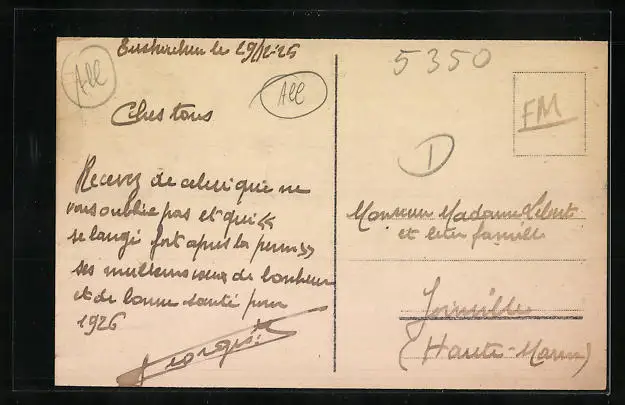 Euskirchen le 29/12-25
All
All
Chers tous
Recevez de celui qui ne
vous oublie pas et qui «
se langé fort après la perm »
ses meilleurs vœux de bonheur
et de bonne santé pour
1926
Georges
5350
FM
I
Monsieur Madame
et leur famille
Joinville
(Haute-Marne)